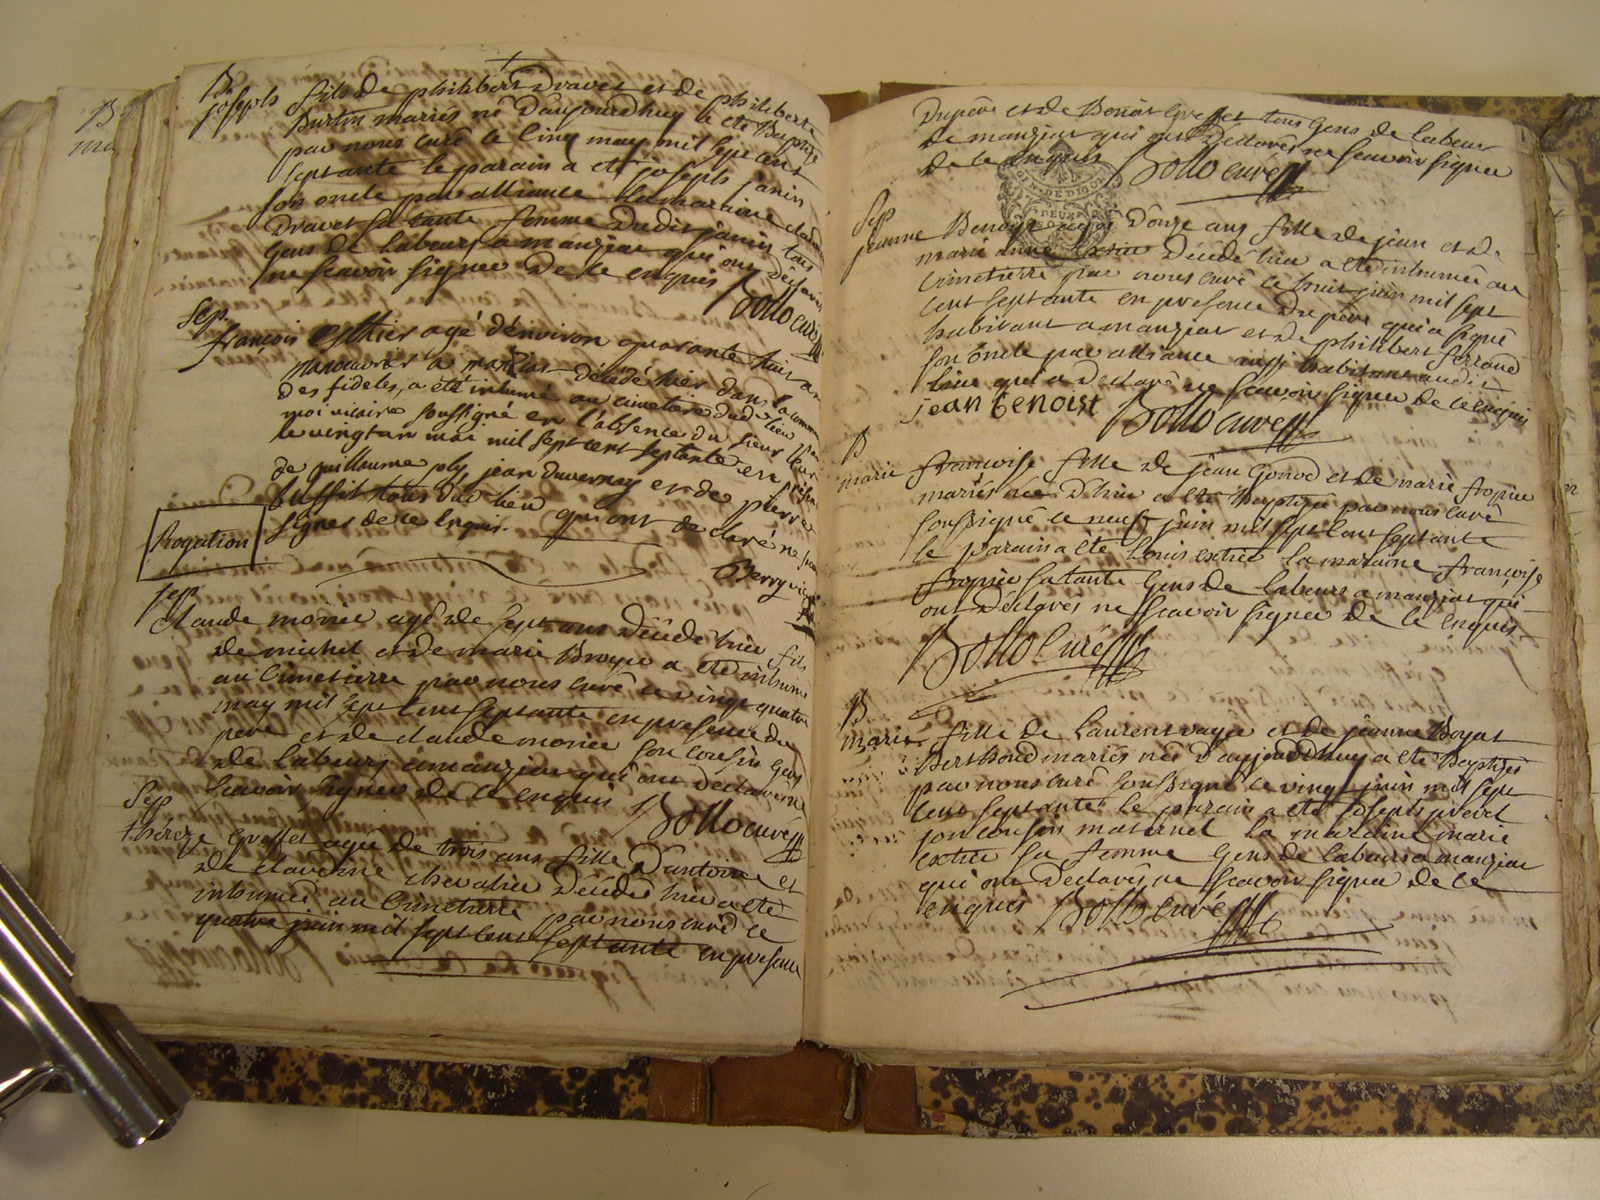 B
joseph fils de philibert Dravet et de philiberte
Burtin mariés né d'aujourdhuy a eté Baptizé
par nous curé le cinq may mil sept cent
septante le parain a eté joseph janin
son oncle par alliance la maraine
Dravet sa tante femme Dudit janin tous
Gens de labeurs a manziat qui ont déclarés
ne scavoir signer de ce enquis Bollo curé
Sep.
françois Cathier agé d'environ quarante huit ans
manouvrier a manziat décédé hier dans la communion
des fideles, a été inhumé au cimetiere dudit lieu par
moi vicaire soussigné en l'absence du sieur curé
le vingt un mai mil sept cent septante en présence
de guillaume jean duvernay et de pierre
buffit tous dud. lieu qui ont declaré ne
signer de ce enquis.
Berry vic
Rogation
Sep
Claude monier agé de sept ans Décédé hier fils
de michel et de marie Broyer a eté inhumé
au Cimetierre par nous curé ce vingt quatre
may mil sept cent septante en presence du
pere et de claude monier son cousin Gens
de labeurs a manziat qui ont declarés ne
scavoir signer de ce enquis Bollo curé
Sep
thérèze Greffet agée de trois ans fille d'antoine et
de claudine chevalier Décédée hier a eté
inhumée au Cimetierre par nous curé ce
quatre juin mil sept cent septante en presence
Dupere et de Benoit Greffet tous Gens de labeur
de manziat qui ont Declarés ne scavoir signer
de ce enquis Bollo curé
GEN. DE DIJON
DEUX
Sep
jeanne Benoist agée D'onze ans fille de jean et de
marie anne Décédé hier a eté inhumée au
Cimetierre par nous curé ce huit juin mil sept
cent septante en presence du pere qui a signé
habitant a manziat et de philibert ferrand
son oncle par alliance aussi habitant audit
lieu qui a Declaré ne scavoir signer de ce enquis
jean benoist Bollo curé
B
marie francoise fille de jean Gonod et de marie fropier
mariés née D'hier a eté Baptizée par nous curé
soussigné ce neuf juin mil sept cent septante
le parain a eté Louis extrier la maraine francoise
fropier sa tante Gens de labeurs a manziat qui
ont Déclarés ne scavoir signer de ce enquis
Bollo Curé
B
marie fille de Laurent vayer et de jeanne Boyat
Berthoud mariés née D'aujourdhuy a eté Baptizée
par nous curé soussigné le vingt juin mil sept
cent septante le parain a eté joseph prevel
son cousin maternel la maraine marie
extrier sa femme Gens de labeurs a manziat
qui ont Declarés ne scavoir signer de ce
enquis Bollo curé